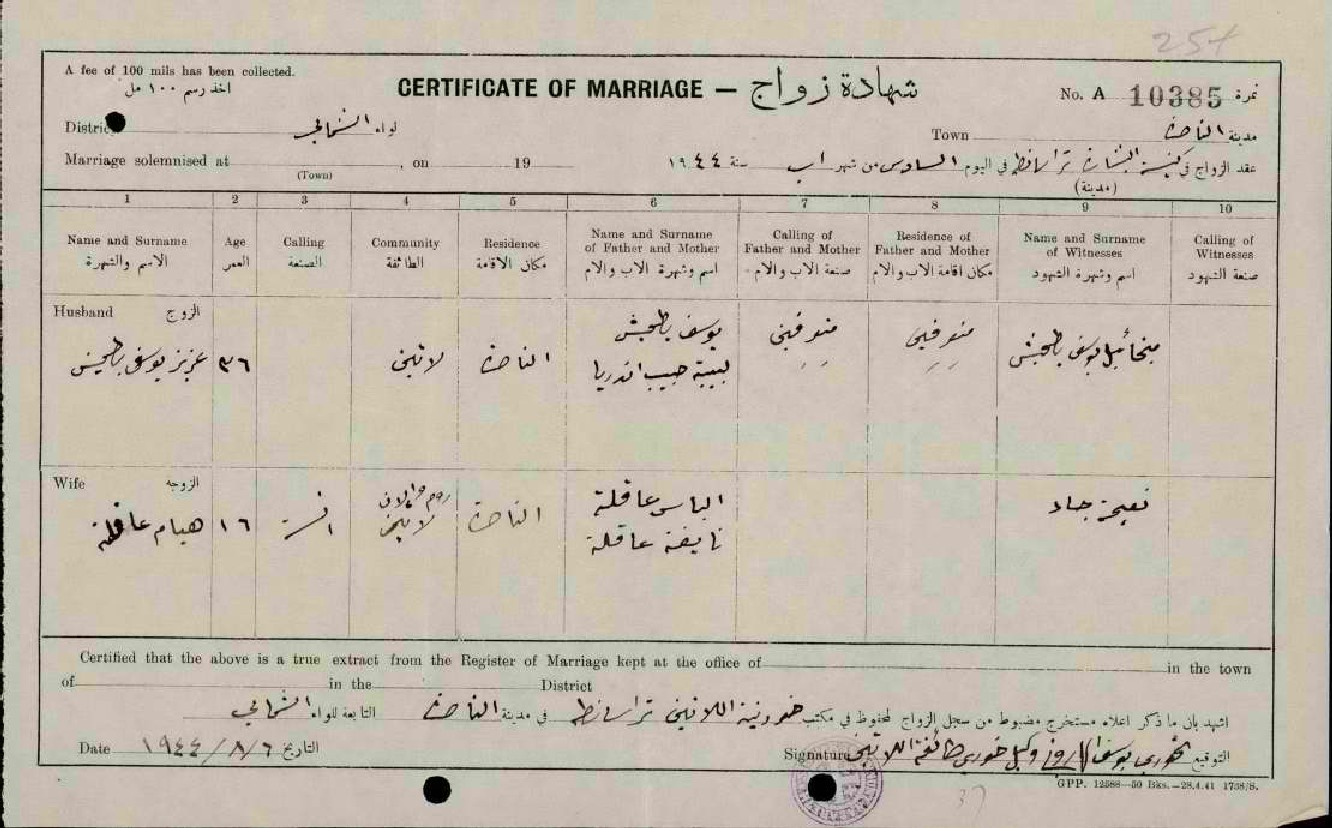 254
A fee of 100 mils has been collected.
اخذ رسم ١٠٠ مل
CERTIFICATE OF MARRIAGE — شهادة زواج
No. A 10385 نمرة
District لواء الشمالي
Town مدينة الناصرة
Marriage solemnised at , on 19
(Town)
عقد الزواج في كنيسة البشارة تراسانطه في اليوم السادس من شهر اب سنة ١٩٤٤
(مدينة)
1 2 3 4 5 6 7 8 9 10
Name and Surname
الاسم والشهرة
Age
العمر
Calling
الصنعة
Community
الطائفة
Residence
مكان الاقامة
Name and Surname
of Father and Mother
اسم وشهرة الاب والام
Calling of
Father and Mother
صنعة الاب والام
Residence of
Father and Mother
مكان اقامة الاب والام
Name and Surname
of Witnesses
اسم وشهرة الشهود
Calling of
Witnesses
صنعة الشهود
Husband الزوج
عزيز يوسف
٣٦
لاتين
الناصرة
يوسف
لبيبة حبيب اندريا
متوفين
متوفين
ميخائيل يوسف
Wife الزوجه
هيام عاقلة
١٦
انسة
روم
لاتين
الناصرة
الياس عاقلة
نايفة عاقلة
جاد
Certified that the above is a true extract from the Register of Marriage kept at the office of in the town
of in the District
اشهد بان ما ذكر اعلاه مستخرج مضبوط من سجل الزواج المحفوظ في مكتب خورنية اللاتين تراسانطه في مدينة الناصرة التابعة للواء الشمالي
Date ١٩٤٤/٨/٦ التاريخ
Signature الخوري يوسف وكيل خوري طائفة اللاتين التوقيع
GPP. 12588—50 Bks.—28.4.41 1738/S.
37